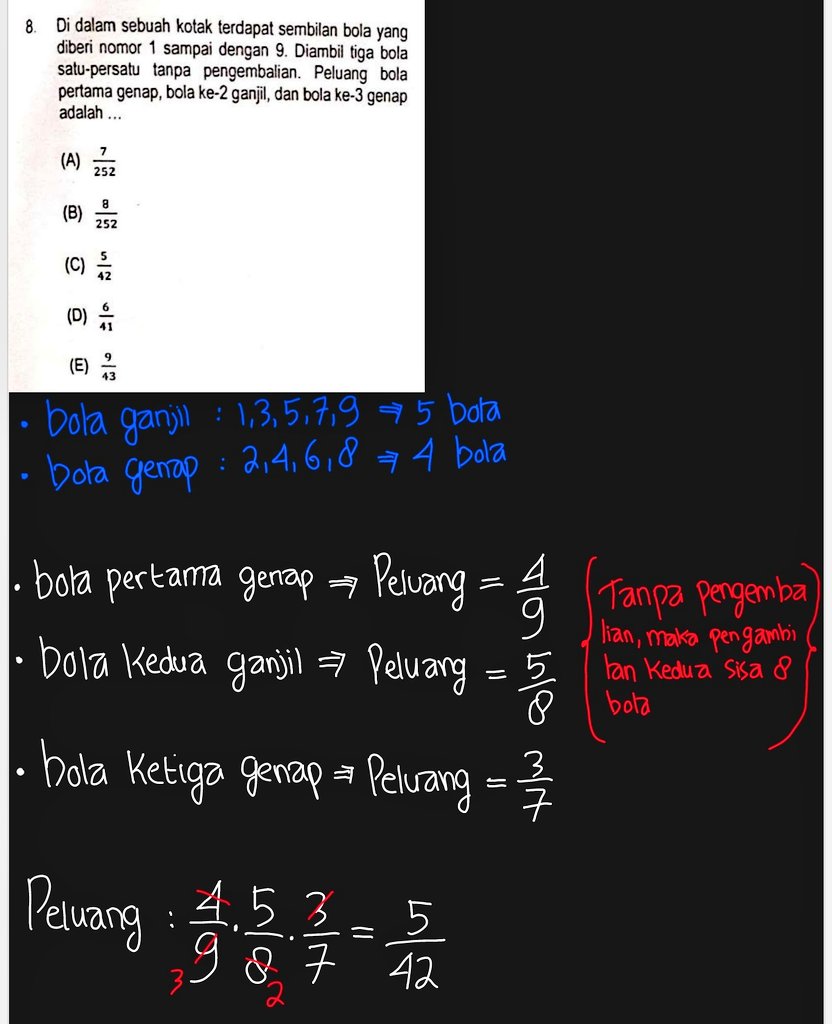 8. Di dalam sebuah kotak terdapat sembilan bola yang
diberi nomor 1 sampai dengan 9. Diambil tiga bola
satu-persatu tanpa pengembalian. Peluang bola
pertama genap, bola ke-2 ganjil, dan bola ke-3 genap
adalah ...
(A) 7/252
(B) 8/252
(C) 5/42
(D) 6/41
(E) 9/43
• bola ganjil : 1,3,5,7,9 ⇒ 5 bola
• bola genap : 2,4,6,8 ⇒ 4 bola
• bola pertama genap ⇒ Peluang = 4/9
• bola kedua ganjil ⇒ Peluang = 5/8
(Tanpa pengemba
lian, maka pengambi
lan kedua sisa 8
bola)
• bola ketiga genap ⇒ Peluang = 3/7
Peluang : 4/9 . 5/8 . 3/7 = 5/42
3 2